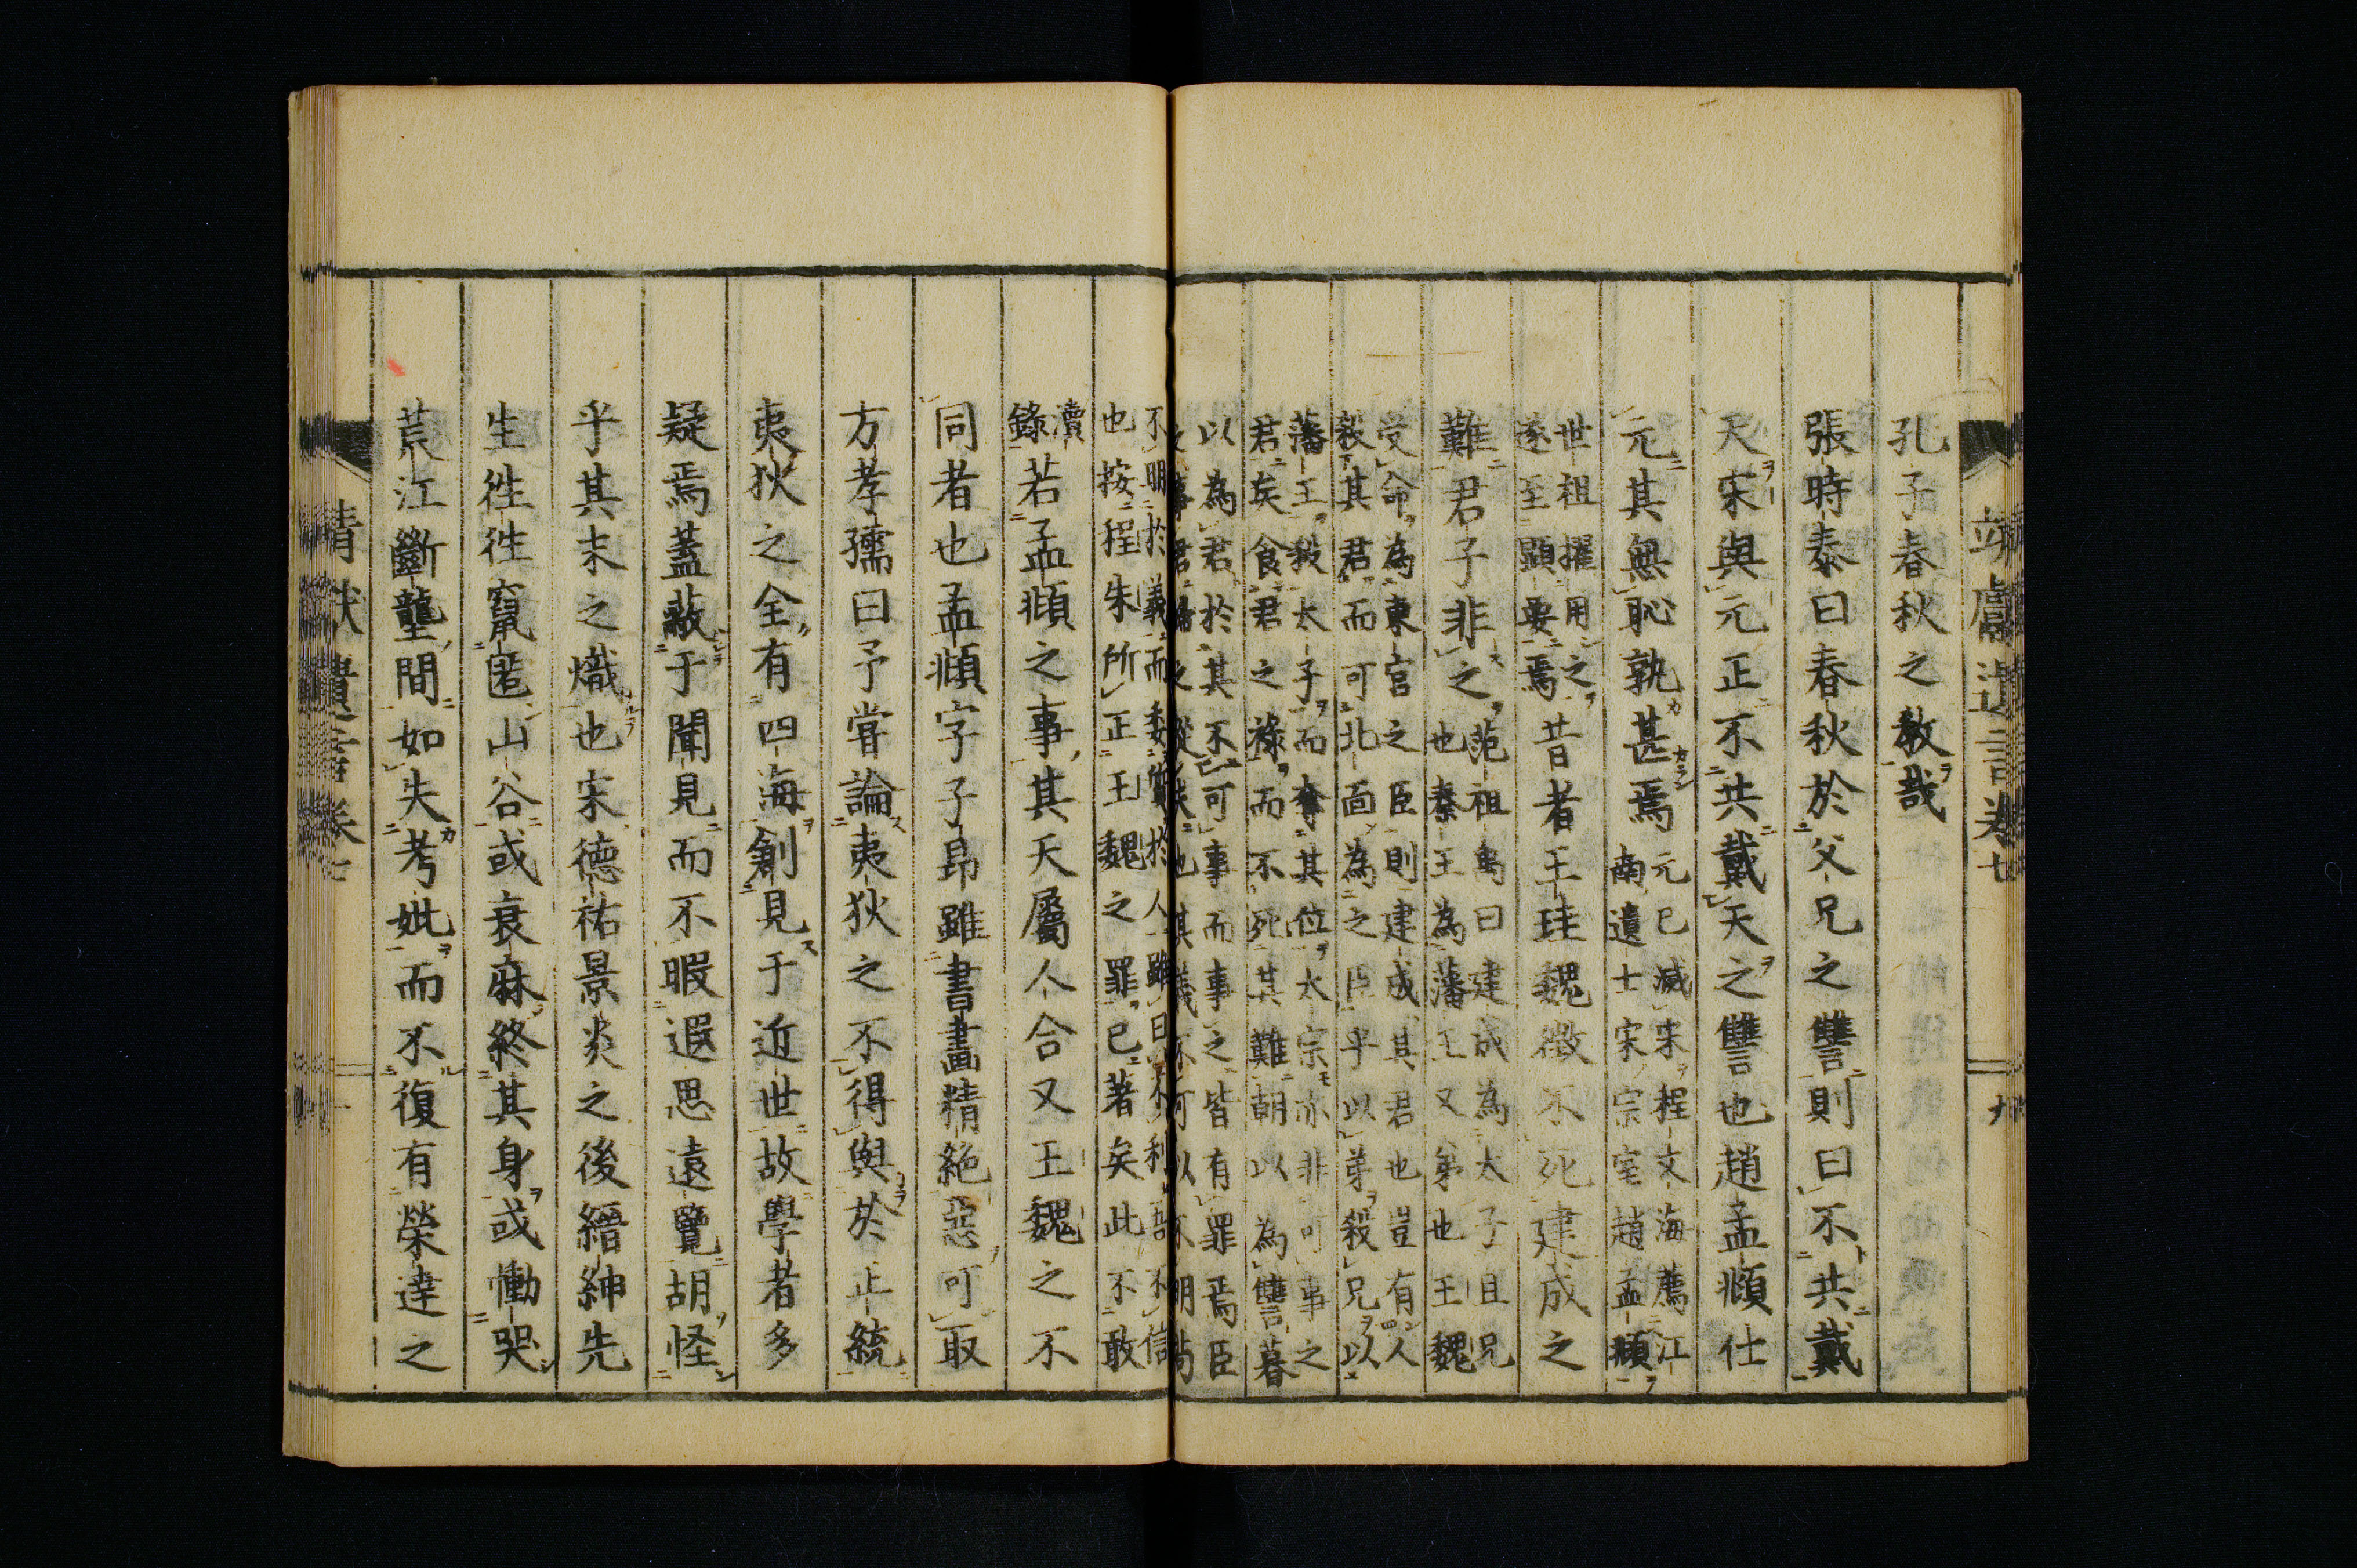 靖獻遺言卷七
九
孔子春秋之敎哉
張時泰曰春秋於父兄之讐則曰不共戴
天宋與元正不共戴天之讐也趙孟頫仕
元其無恥孰甚焉
元已滅宋程文海薦江
南遺士宋宗室趙孟頫
世祖擢用之
遂至顯要焉
昔者王珪魏徵不死建成之
難君子非之
范祖禹曰建成爲太子且兄
也秦王爲藩王又弟也王魏
受命爲東宮之臣則建成其君也豈有人
殺其君而可北面爲之臣乎以弟殺兄以
藩王殺太子而奪其位太宗亦非可事之
君矣食君之祿而不死其難朝以爲讐暮
以爲君於其不可事而事之皆有罪焉臣
之事君其義不可以不明苟
不明於義而委質於人雖曰不利吾不信
也按程朱所正王魏之罪已著矣此不敢
瀆
錄
若孟頫之事其天屬人合又王魏之不
同者也孟頫字子昻雖書畫精絶惡可取
方孝孺曰予嘗論夷狄之不得與於正統
夷狄之全有四海創見于近世故學者多
疑焉蓋蔽于聞見而不暇遐思遠覽胡怪
乎其末之熾也宋德祐景炎之後縉紳先
生徃徃竄匿山谷或衰麻終其身或慟哭
荒江斷壟間如失考妣而不復有榮達之
靖獻遺言卷七